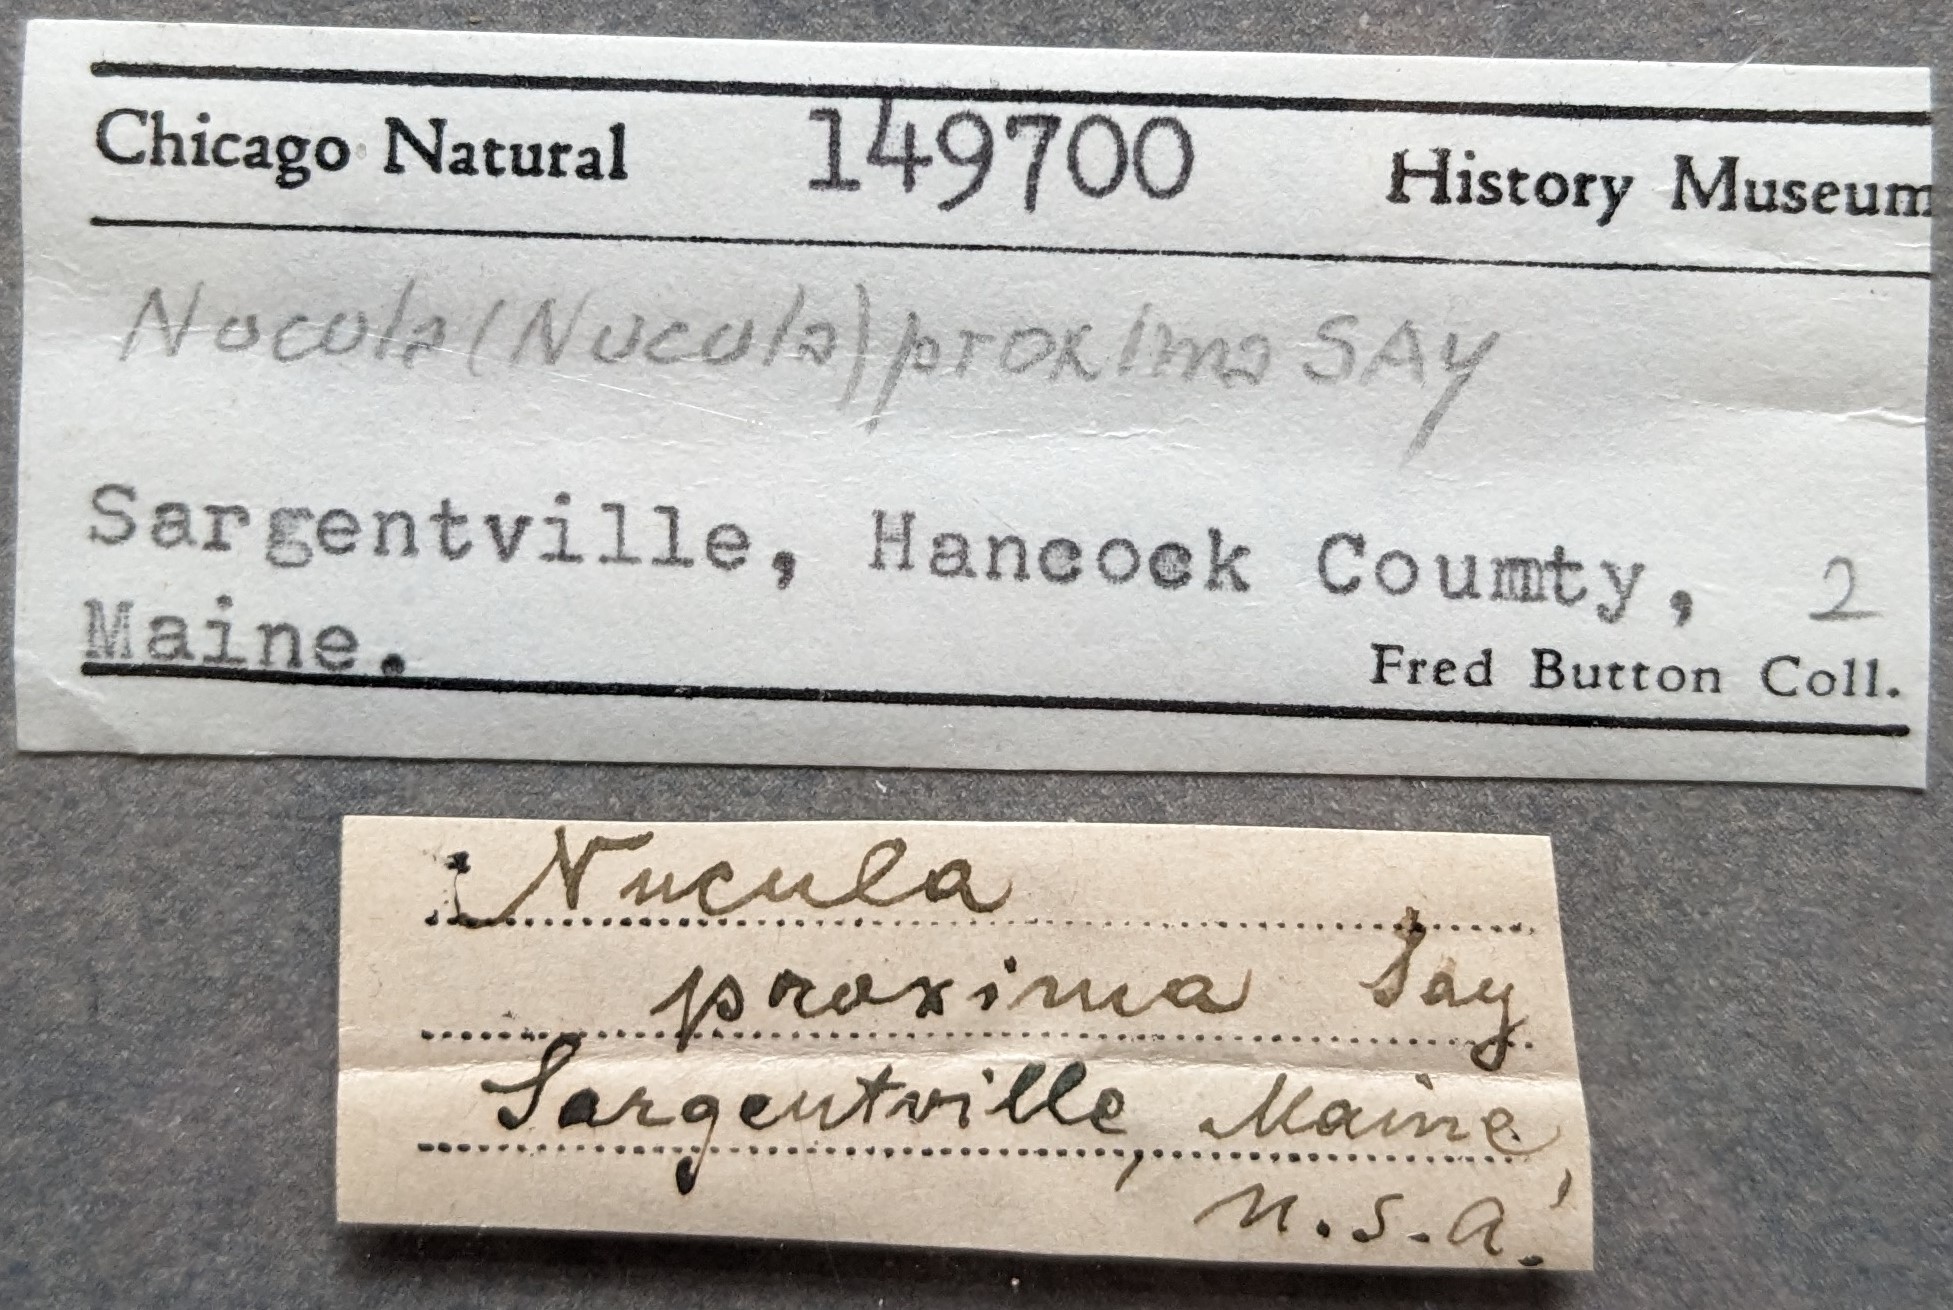 Chicago Natural 149700 History Museum
Nucula (Nucula) proxima SAY
Sargentville, Hancock County, 2
Maine.
Fred Button Coll.
Nucula
proxima Say
Sargentville, Maine,
U.S.A.